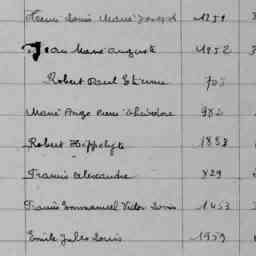 Henri Louis Marie Joseph 1259
Jean Marie Auguste 1952
Robert Paul Etienne 705
Marie Ange Pierre Théodore 982
Robert Hippolyte 1888
Francis Alexandre 829
Francis Emmanuel Victor Louis 1453
Emile Jules Louis 1959